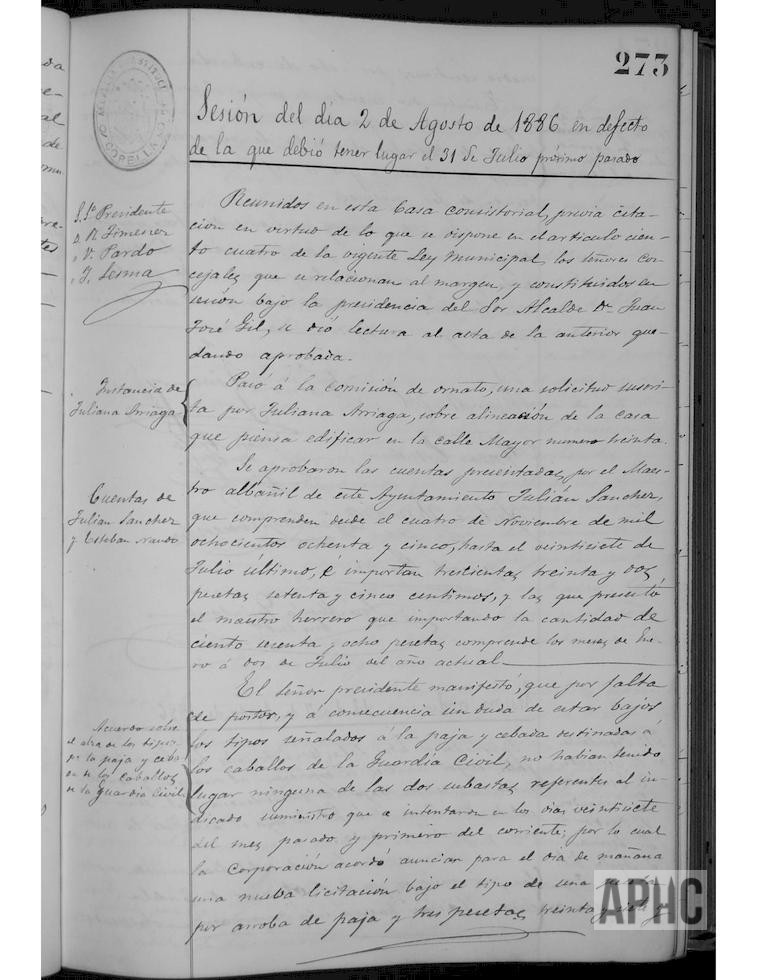 273
Sesión del dia 2 de Agosto de 1886 en defecto
de la que debió tener lugar el 31 de Julio próximo pasado
S. Sr Presidente
D. R. Jimenez
" V. Pardo
" J. Sesma
Reunidos en esta Casa consistorial, previa cita-
cion en virtud de lo que se dispone en el articulo cien-
to cuatro de la vigente Ley Municipal, los señores con-
cejales que se relacionan al margen, y constituidos en
sesión bajo la presidencia del Sor Alcalde Dn Juan
José Gil, se dió lectura al acta de la anterior que-
dando aprobada.
Instancia de
Juliana Arriaga
Pasó á la comisión de ornato, una solicitud suscri-
ta por Juliana Arriaga, sobre alineación de la casa
que piensa edificar en la calle Mayor numero treinta.
Cuentas de
Julian Sanchez
y Esteban
Se aprobaron las cuentas presentadas, por el Maes-
tro albañil de este Ayuntamiento Julián Sanchez,
que comprenden desde el cuatro de Noviembre de mil
ochocientos ochenta y cinco, hasta el veintisiete de
Julio ultimo, é importan trescientas treinta y dos
pesetas setenta y cinco centimos, y las que presentó
el maestro herrero que importando la cantidad de
ciento sesenta y ocho pesetas comprende los meses de Ene-
ro á dos de Julio del año actual.
Acuerdo sobre
el alza de los tipos
de la paja y ceba-
da de los caballos
de la Guardia Civil
El señor presidente manifestó, que por falta
de postor, y á consecuencia sin duda de estar bajos
los tipos señalados á la paja y cebada destinadas á
los caballos de la Guardia Civil, no habian tenido
lugar ninguna de las dos subastas referentes al in-
dicado suministro que se intentaron en los dias veintisiete
del mes pasado y primero del corriente; por lo cual
la Corporación acordó aunciar para el dia de mañana
una nueva licitación bajo el tipo de una peseta
por arroba de paja y tres pesetas treinta y siete
CORELLA
APHC